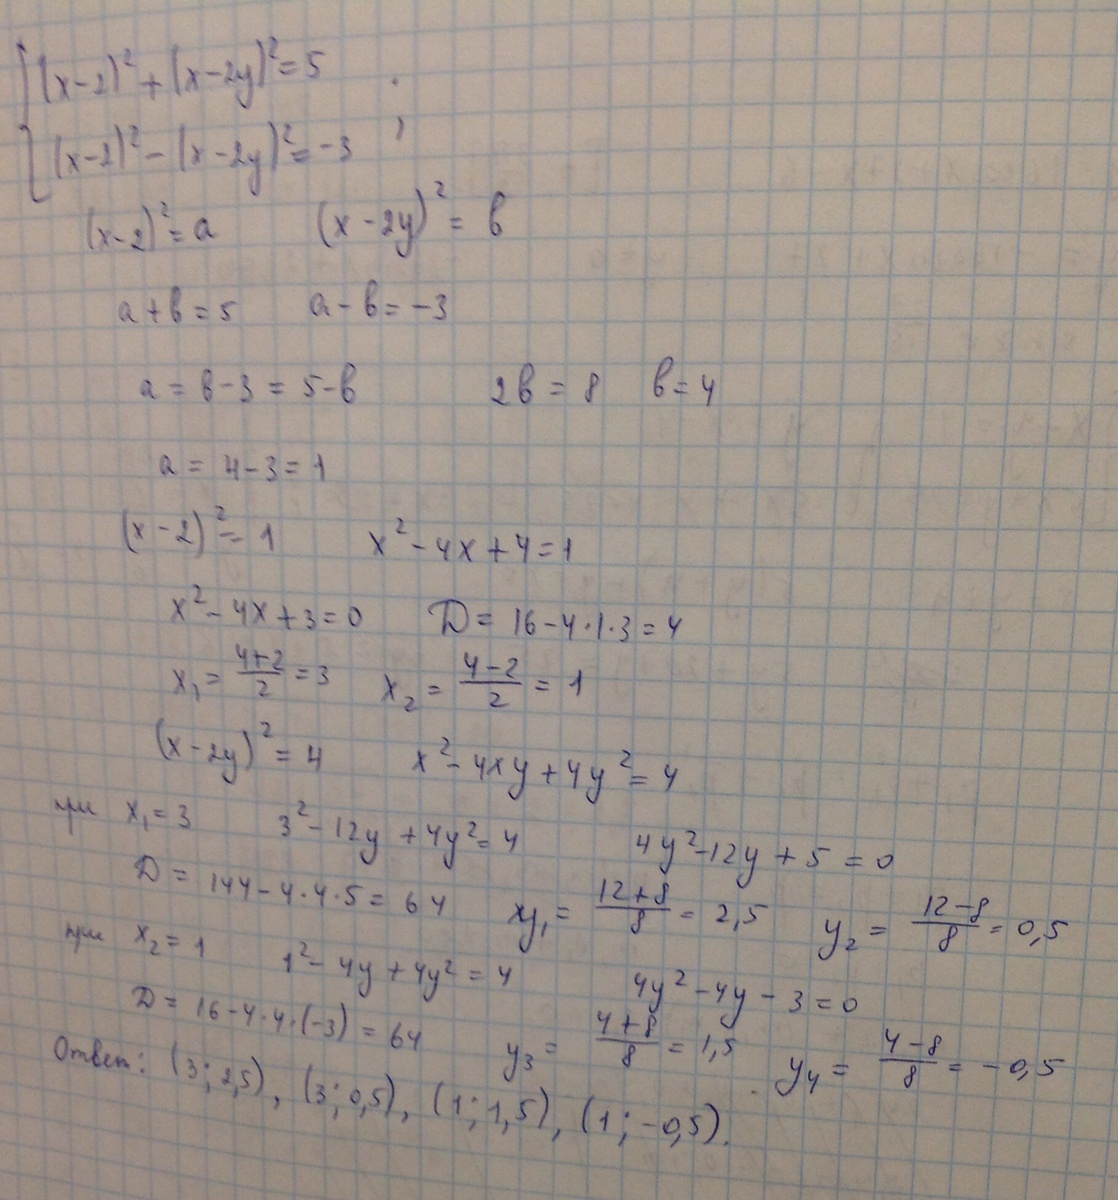 (x-2)² + (x-2y)² = 5
(x-2)² - (x-2y)² = -3 ;
(x-2)² = a (x-2y)² = в
a+в=5 a-в=-3
a = в-3 = 5-в 2в = 8 в=4
a = 4-3=1
(x-2)² = 1 x²-4x+4=1
x²-4x+3=0 D= 16-4·1·3=4
x₁= (4+2)/2 =3 x₂ = (4-2)/2 = 1
(x-2y)² = 4 x²-4xy+4y²=4
при x₁=3 3²-12y+4y²=4 4y²-12y+5=0
D= 144-4·4·5=64 xy₁= (12+8)/8 = 2,5 y₂= (12-8)/8 =0,5
при x₂=1 1²-4y+4y²=4 4y²-4y-3=0
D= 16-4·4·(-3)=64 y₃= (4+8)/8 =1,5 y₄= (4-8)/8 = -0,5
Ответ: (3; 2,5), (3; 0,5), (1; 1,5), (1; -0,5).